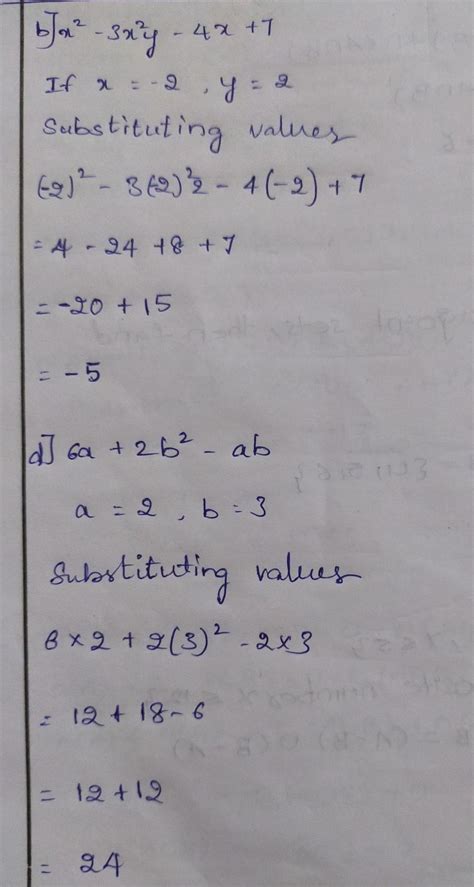 b] x² - 3x²y - 4x + 7
If x = -2 , y = 2
Substituting values
(-2)² - 3(-2)²2 - 4(-2) + 7
= 4 - 24 + 8 + 7
= -20 + 15
= -5
d] 6a + 2b² - ab
a = 2 , b = 3
Substituting values
6 × 2 + 2(3)² - 2×3
= 12 + 18 - 6
= 12 + 12
= 24